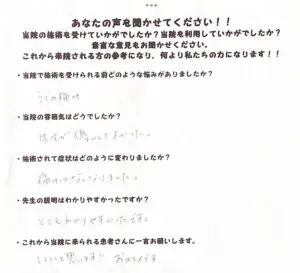 あなたの声を聞かせてください！！
当院の施術を受けていかがでしたか？当院を利用していかがでしたか？
素直な意見をお聞かせください。
これから来院される方の参考になり、何より私たちの力になります！！
・当院で施術を受けられる前どのような悩みがありましたか？
うでの痛み
・当院の雰囲気はどうでしたか？
・施術されて症状はどのように変わりましたか？
痛みがなくなりました。
・先生の説明はわかりやすかったですか？
とてもわかりやすかったです。
・これから当院に来られる患者さんに一言お願いします。
いいと思います！！おススメです